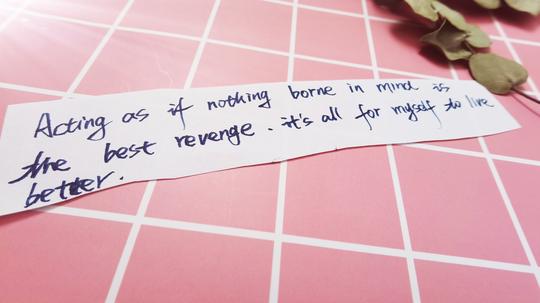 Acting as if nothing borne in mind is
the best revenge. it's all for myself to live
better.